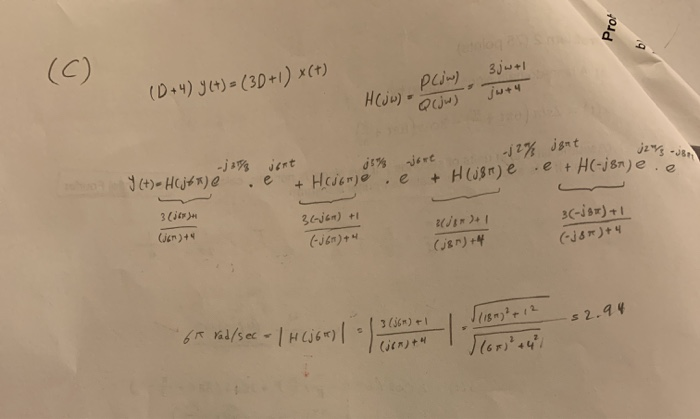 (C)
(D+4) y(t) = (3D+1) x(t)
H(jω) = P(jω)/Q(jω) = 3jω+1/jω+4
y(t) = H(j6π) e^-j3π/8 · e^j6πt + H(j6π) e^j3π/8 · e^-j6πt + H(j8π) e^-j2π/3 · e^j8πt + H(-j8π) e^j2π/3 · e^-j8πt
3(j6π)+1/(j6π)+4 3(-j6π)+1/(-j6π)+4 3(j8π)+1/(j8π)+4 3(-j8π)+1/(-j8π)+4
6π rad/sec = |H(j6π)| = |3(j6π)+1/(j6π)+4| = √(18π)²+1²/√(6π)²+4² = 2.94
Prob
b)